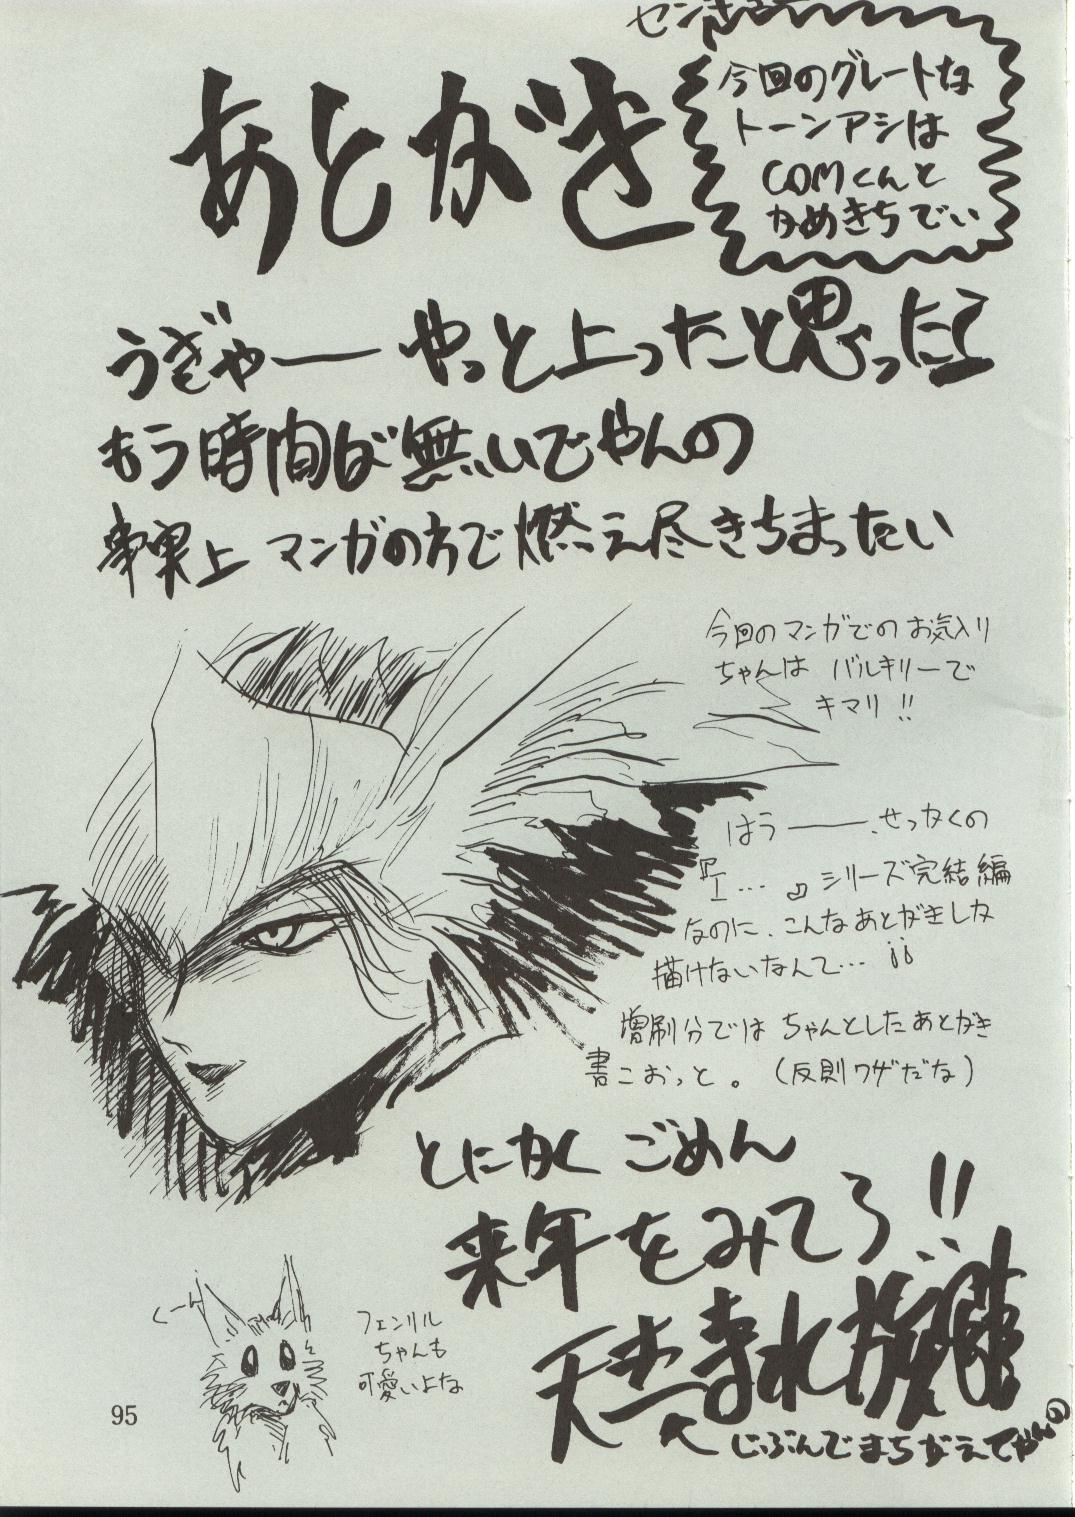 あとがき
今回のグレートな
トーンアシは
COMくんと
かめきちでい
うぎゃーーやっと上ったと思ったら
もう時間が無いでやんの
事実上マンガの方で燃え尽きちまったい
今回のマンガでのお気入り
ちゃんは バルキリーで
キマリ!!
はうーー、せっかくの
シリーズ完結編
なのに、こんなあとがきしか
描けないなんて…
増刷分では ちゃんとしたあとがき
書こおっと。(反則ワザだな)
とにかく ごめん
来年をみてろ!!
くーん
フェンリル
ちゃんも
可愛いよな
じぶんでまちがえてやんの
95